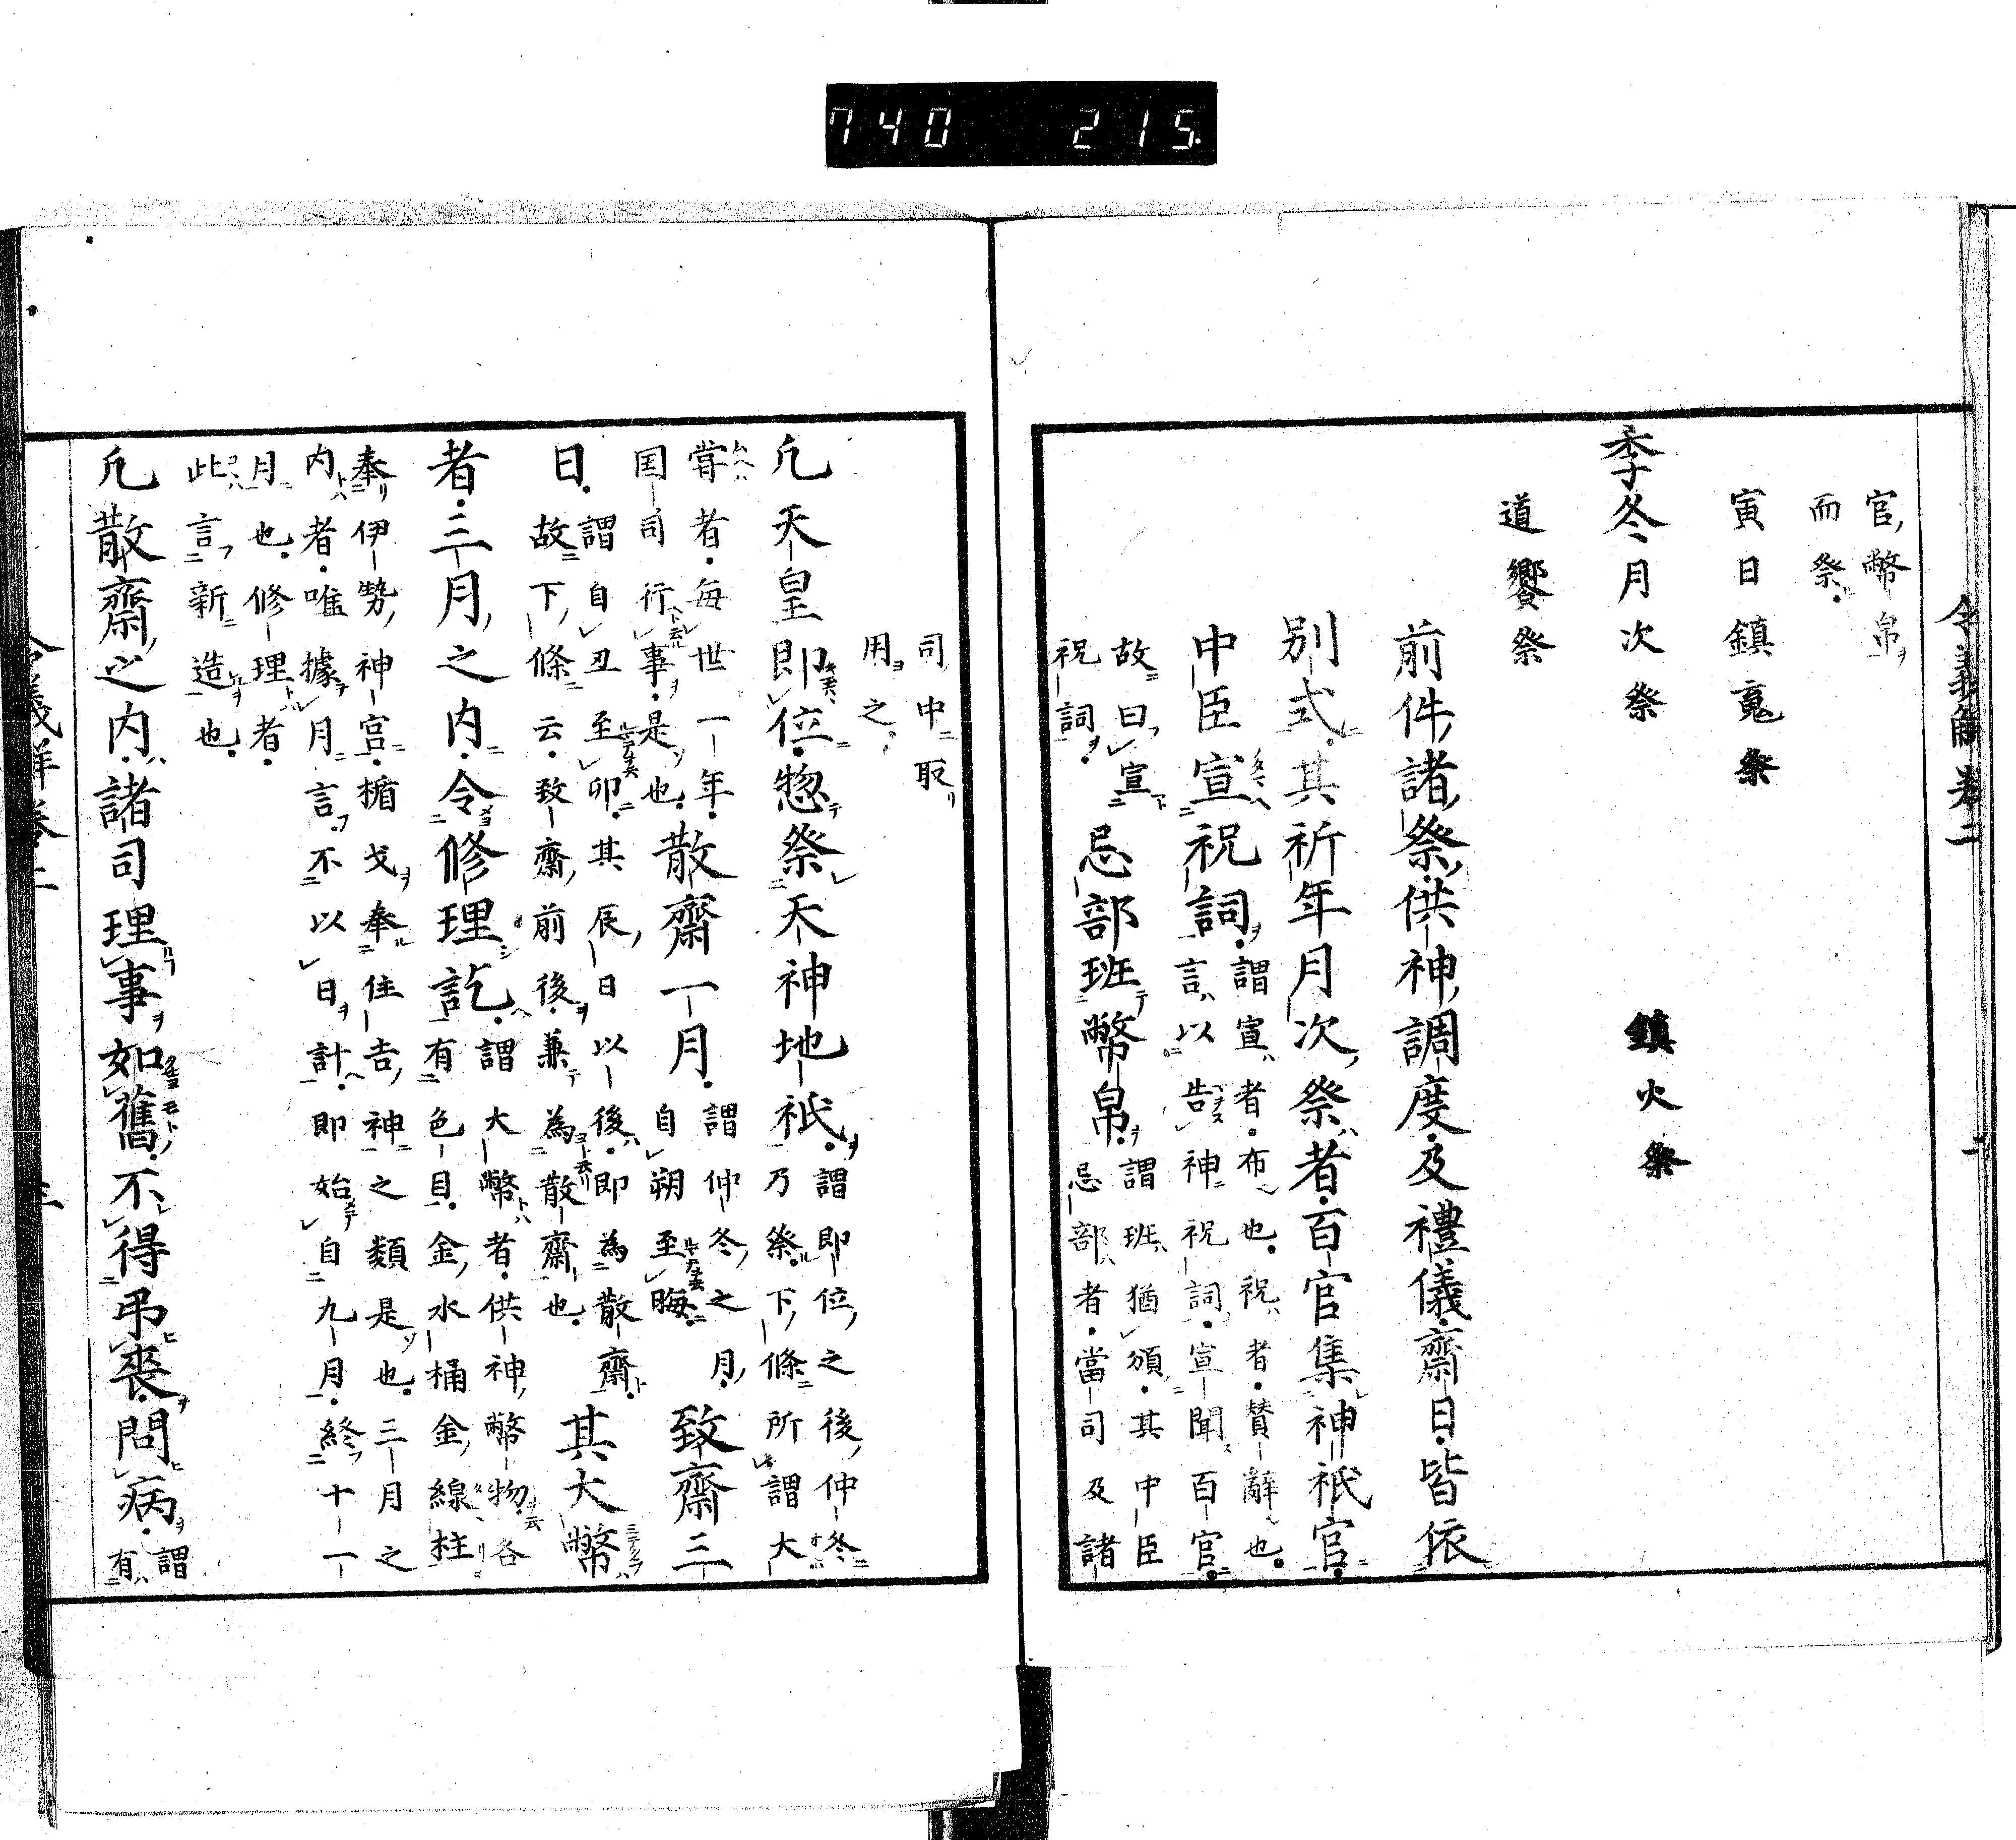 740 215
令義解卷二
官幣帛
而祭
寅日鎮䰟祭
季冬月次祭 鎮火祭
道饗祭
前件諸祭供神調度及禮儀齋日皆依
別式其祈年月次祭者百官集神祇官
中臣宣祝詞
謂宣者布也祝者賛辭也
言以告神祝詞宣聞百官
故曰宣
祝詞
忌部班幣帛
謂班猶頒其中臣
忌部者當司及諸
司中取
用之
凢天皇即位惣祭天神地祇
謂即位之後仲冬
乃祭下條所謂大
甞者每世一年
国司行事是也
散齋一月
謂仲冬之月
自朔至晦
致齋三
日
謂自丑至卯其辰日以後即為散齋
故下條云致齋前後兼為散齋也
其大幣
者三月之内令修理訖
謂大幣者供神幣物各
有色目金水桶金線柱
奉伊勢神宮楯戈奉住吉神之類是也三月之
内者唯據月言不以日計即始自九月終十一
月也修理者
此言新造也
凢散齋之内諸司理事如舊不得弔喪問病
謂
有